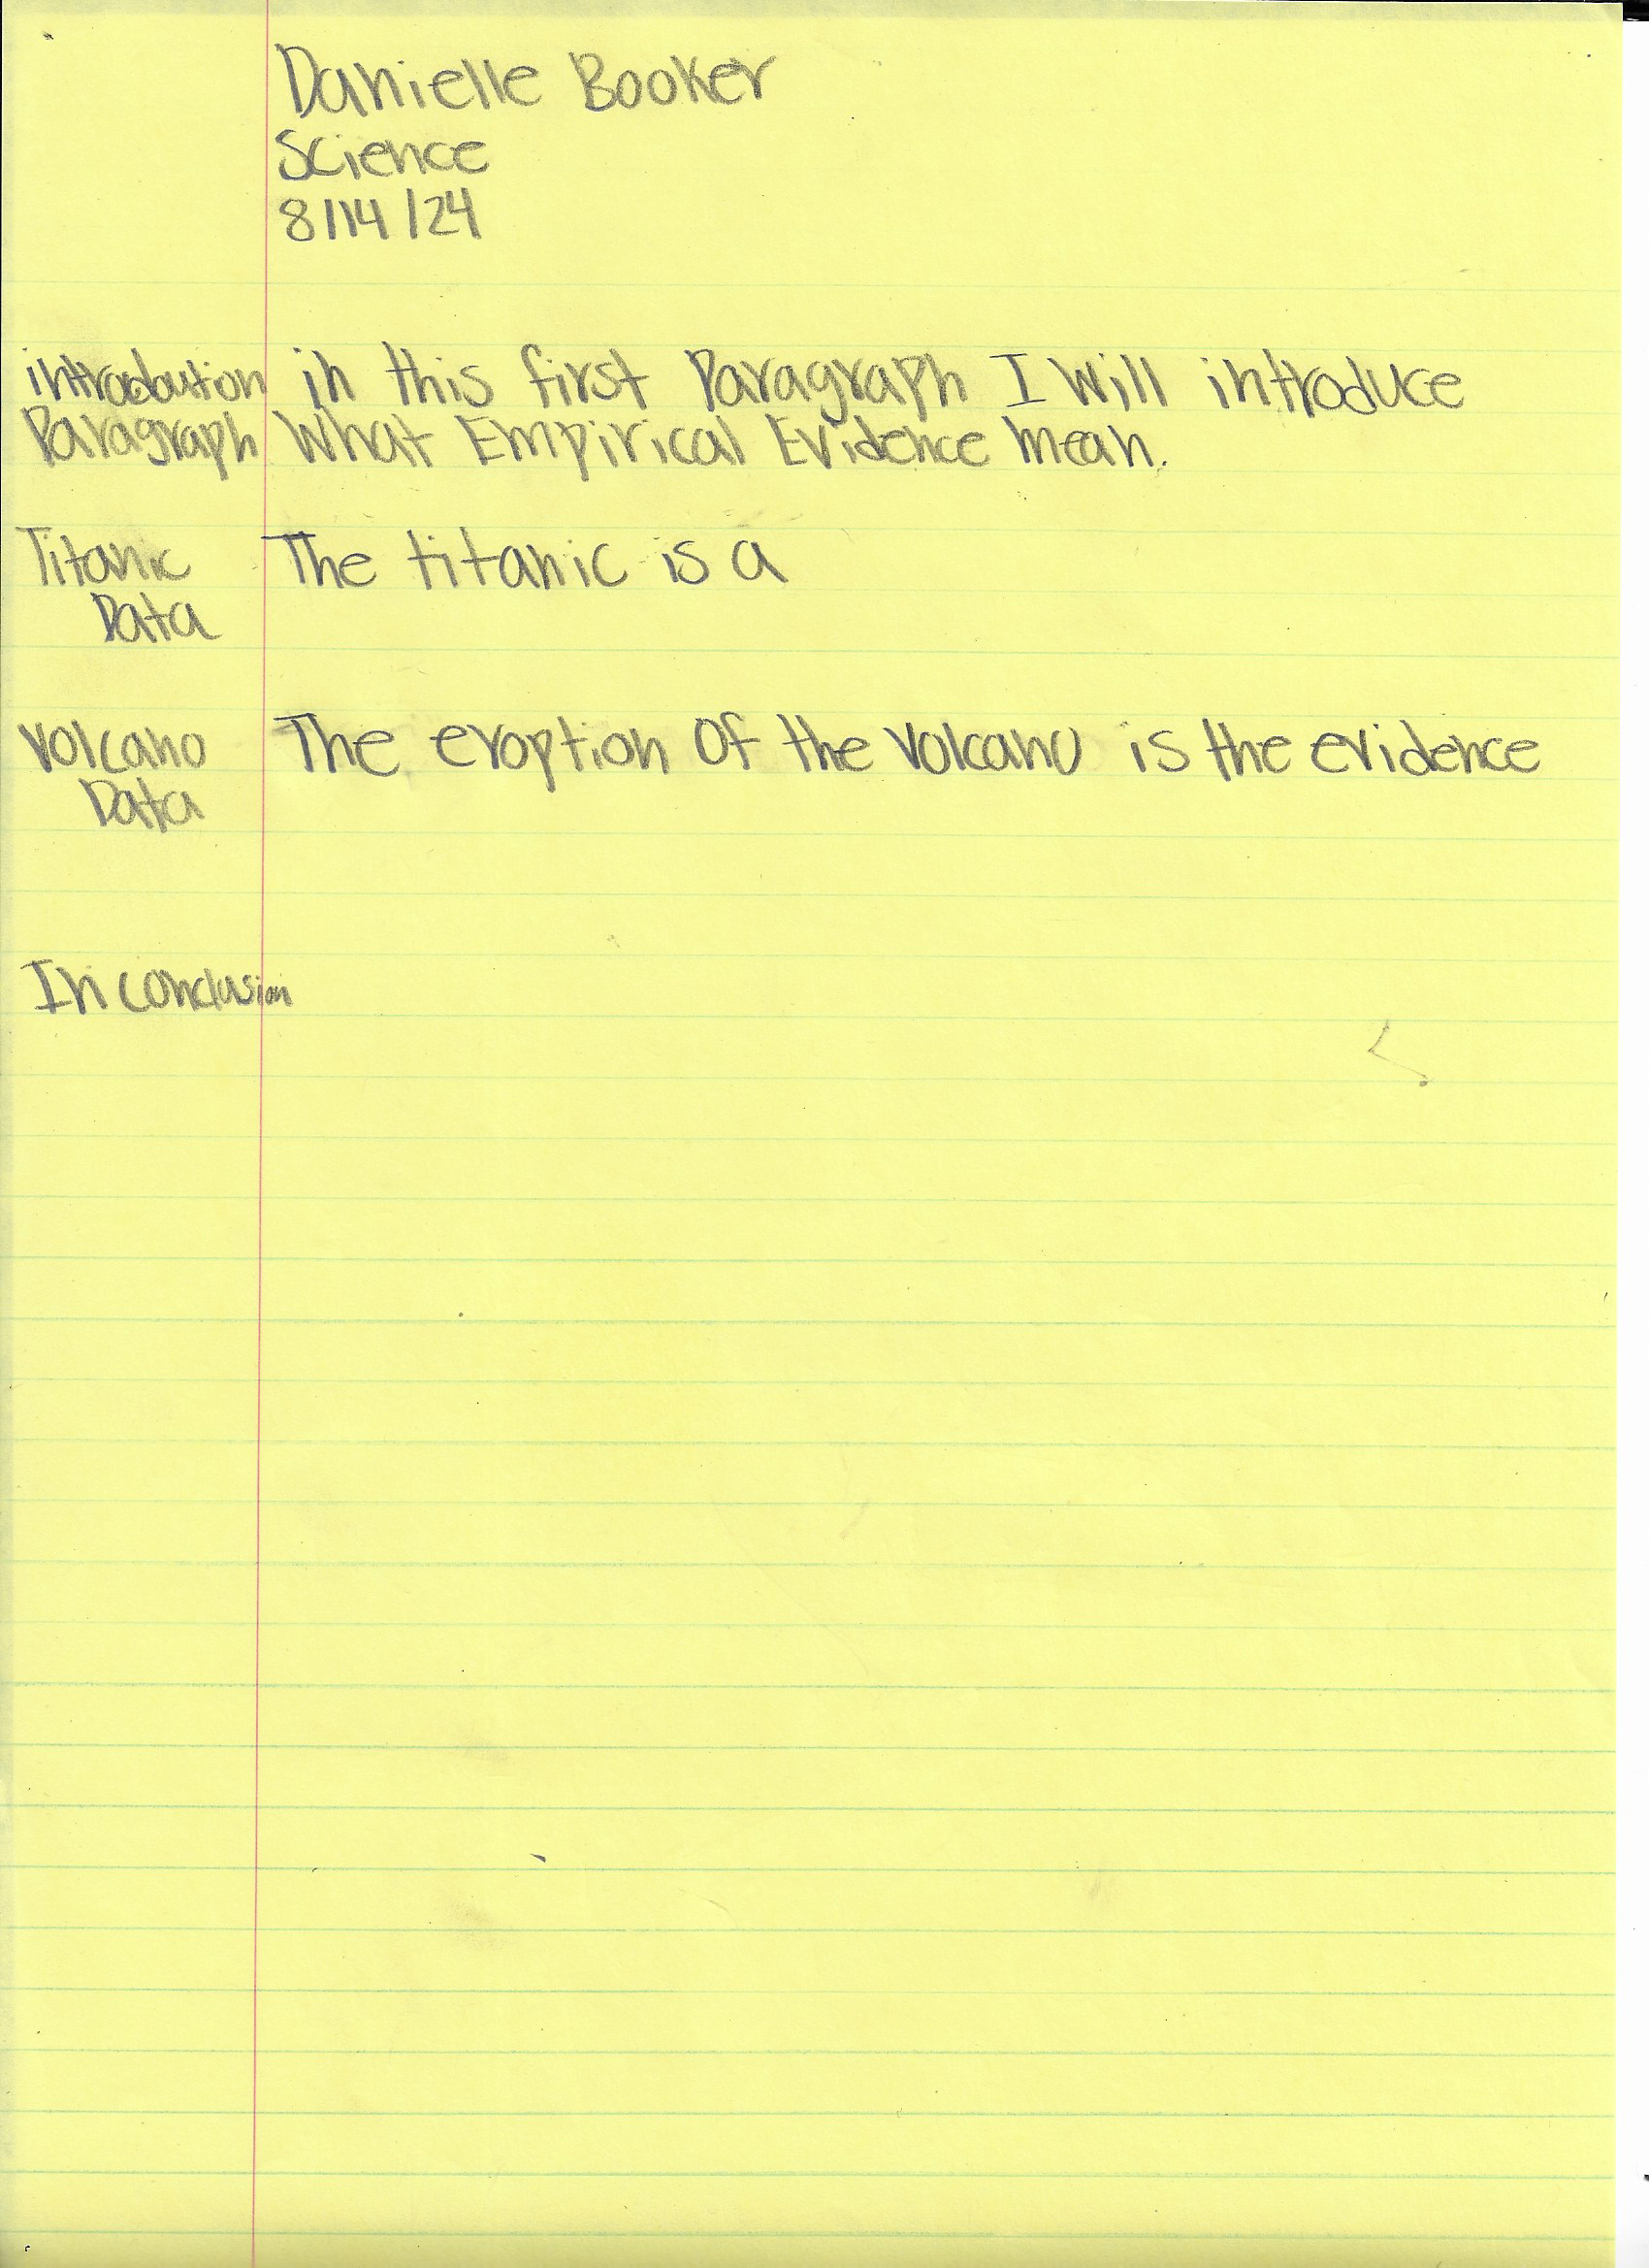 Danielle Booker
Science
8/14/24
introdution in this first Paragraph I Will introduce
Paragraph What Empirical Evidence mean.
Titanic The titanic is a
Data
Volcano The eroption Of the Volcano is the evidence
Data
In conclusion